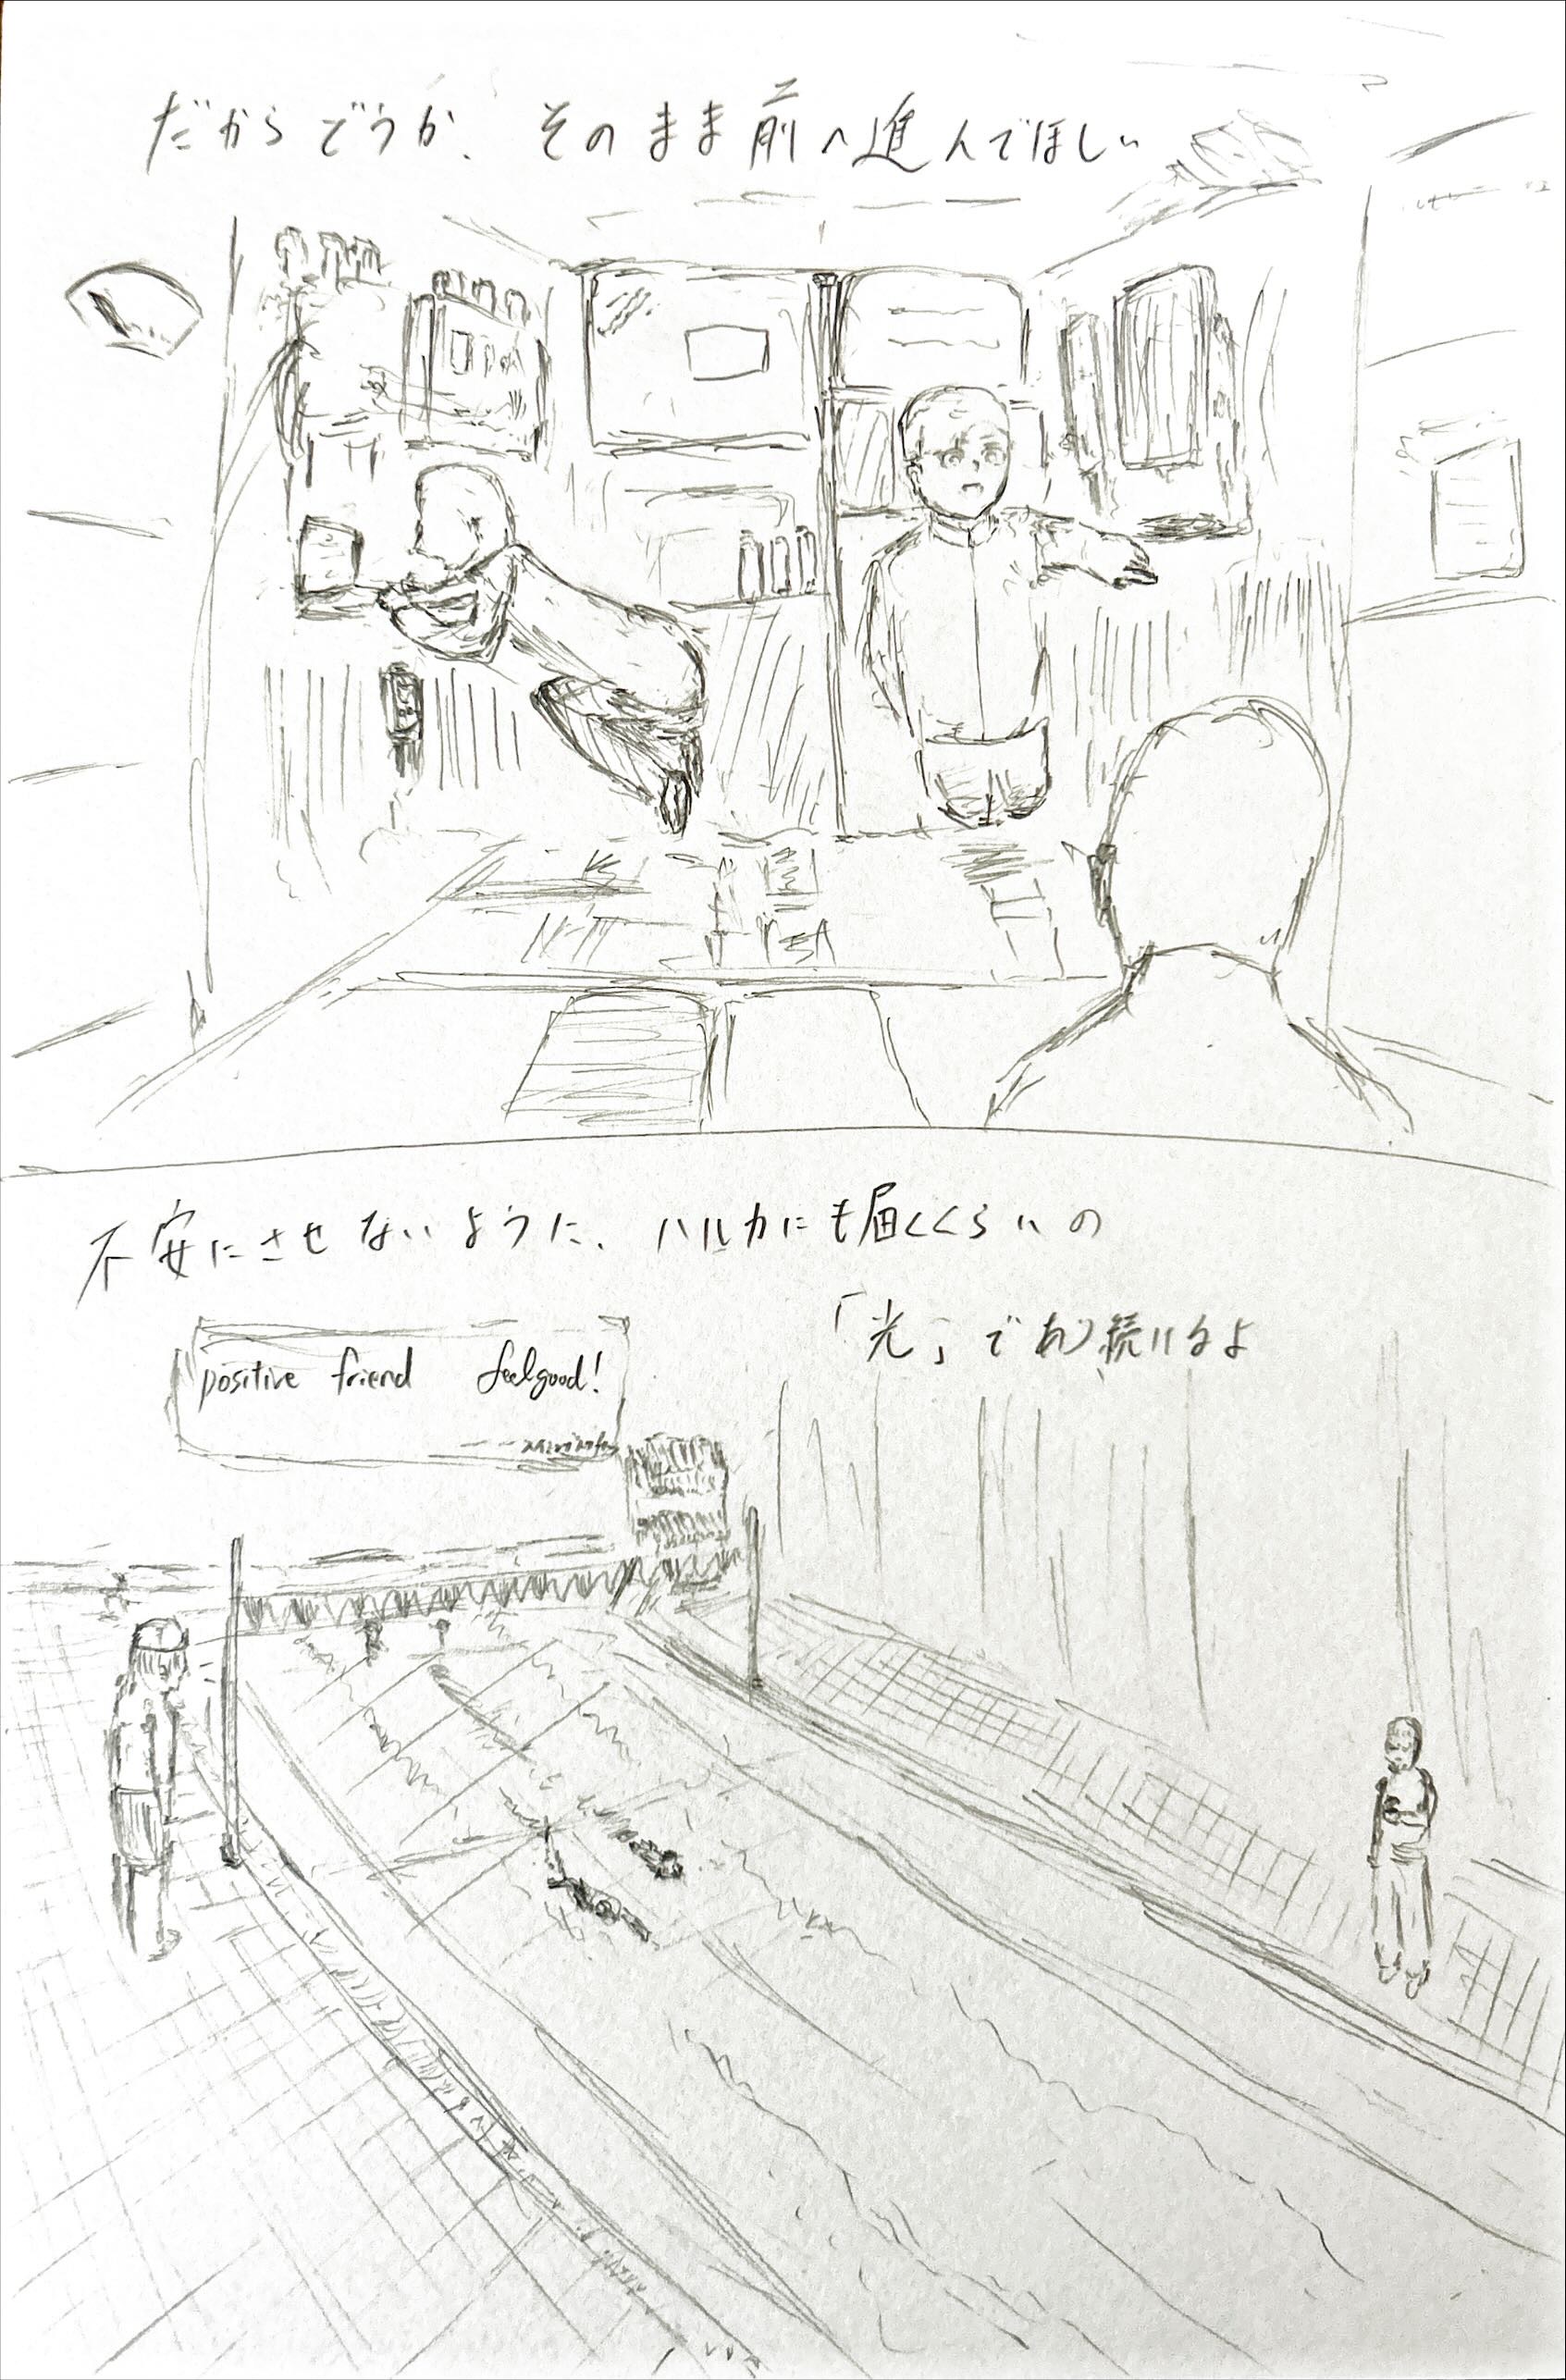 だからどうか、そのまま前へ進んでほしい
不安にさせないように、ハルカにも届くくらいの
「光」であり続けるよ
positive friend feelgood!